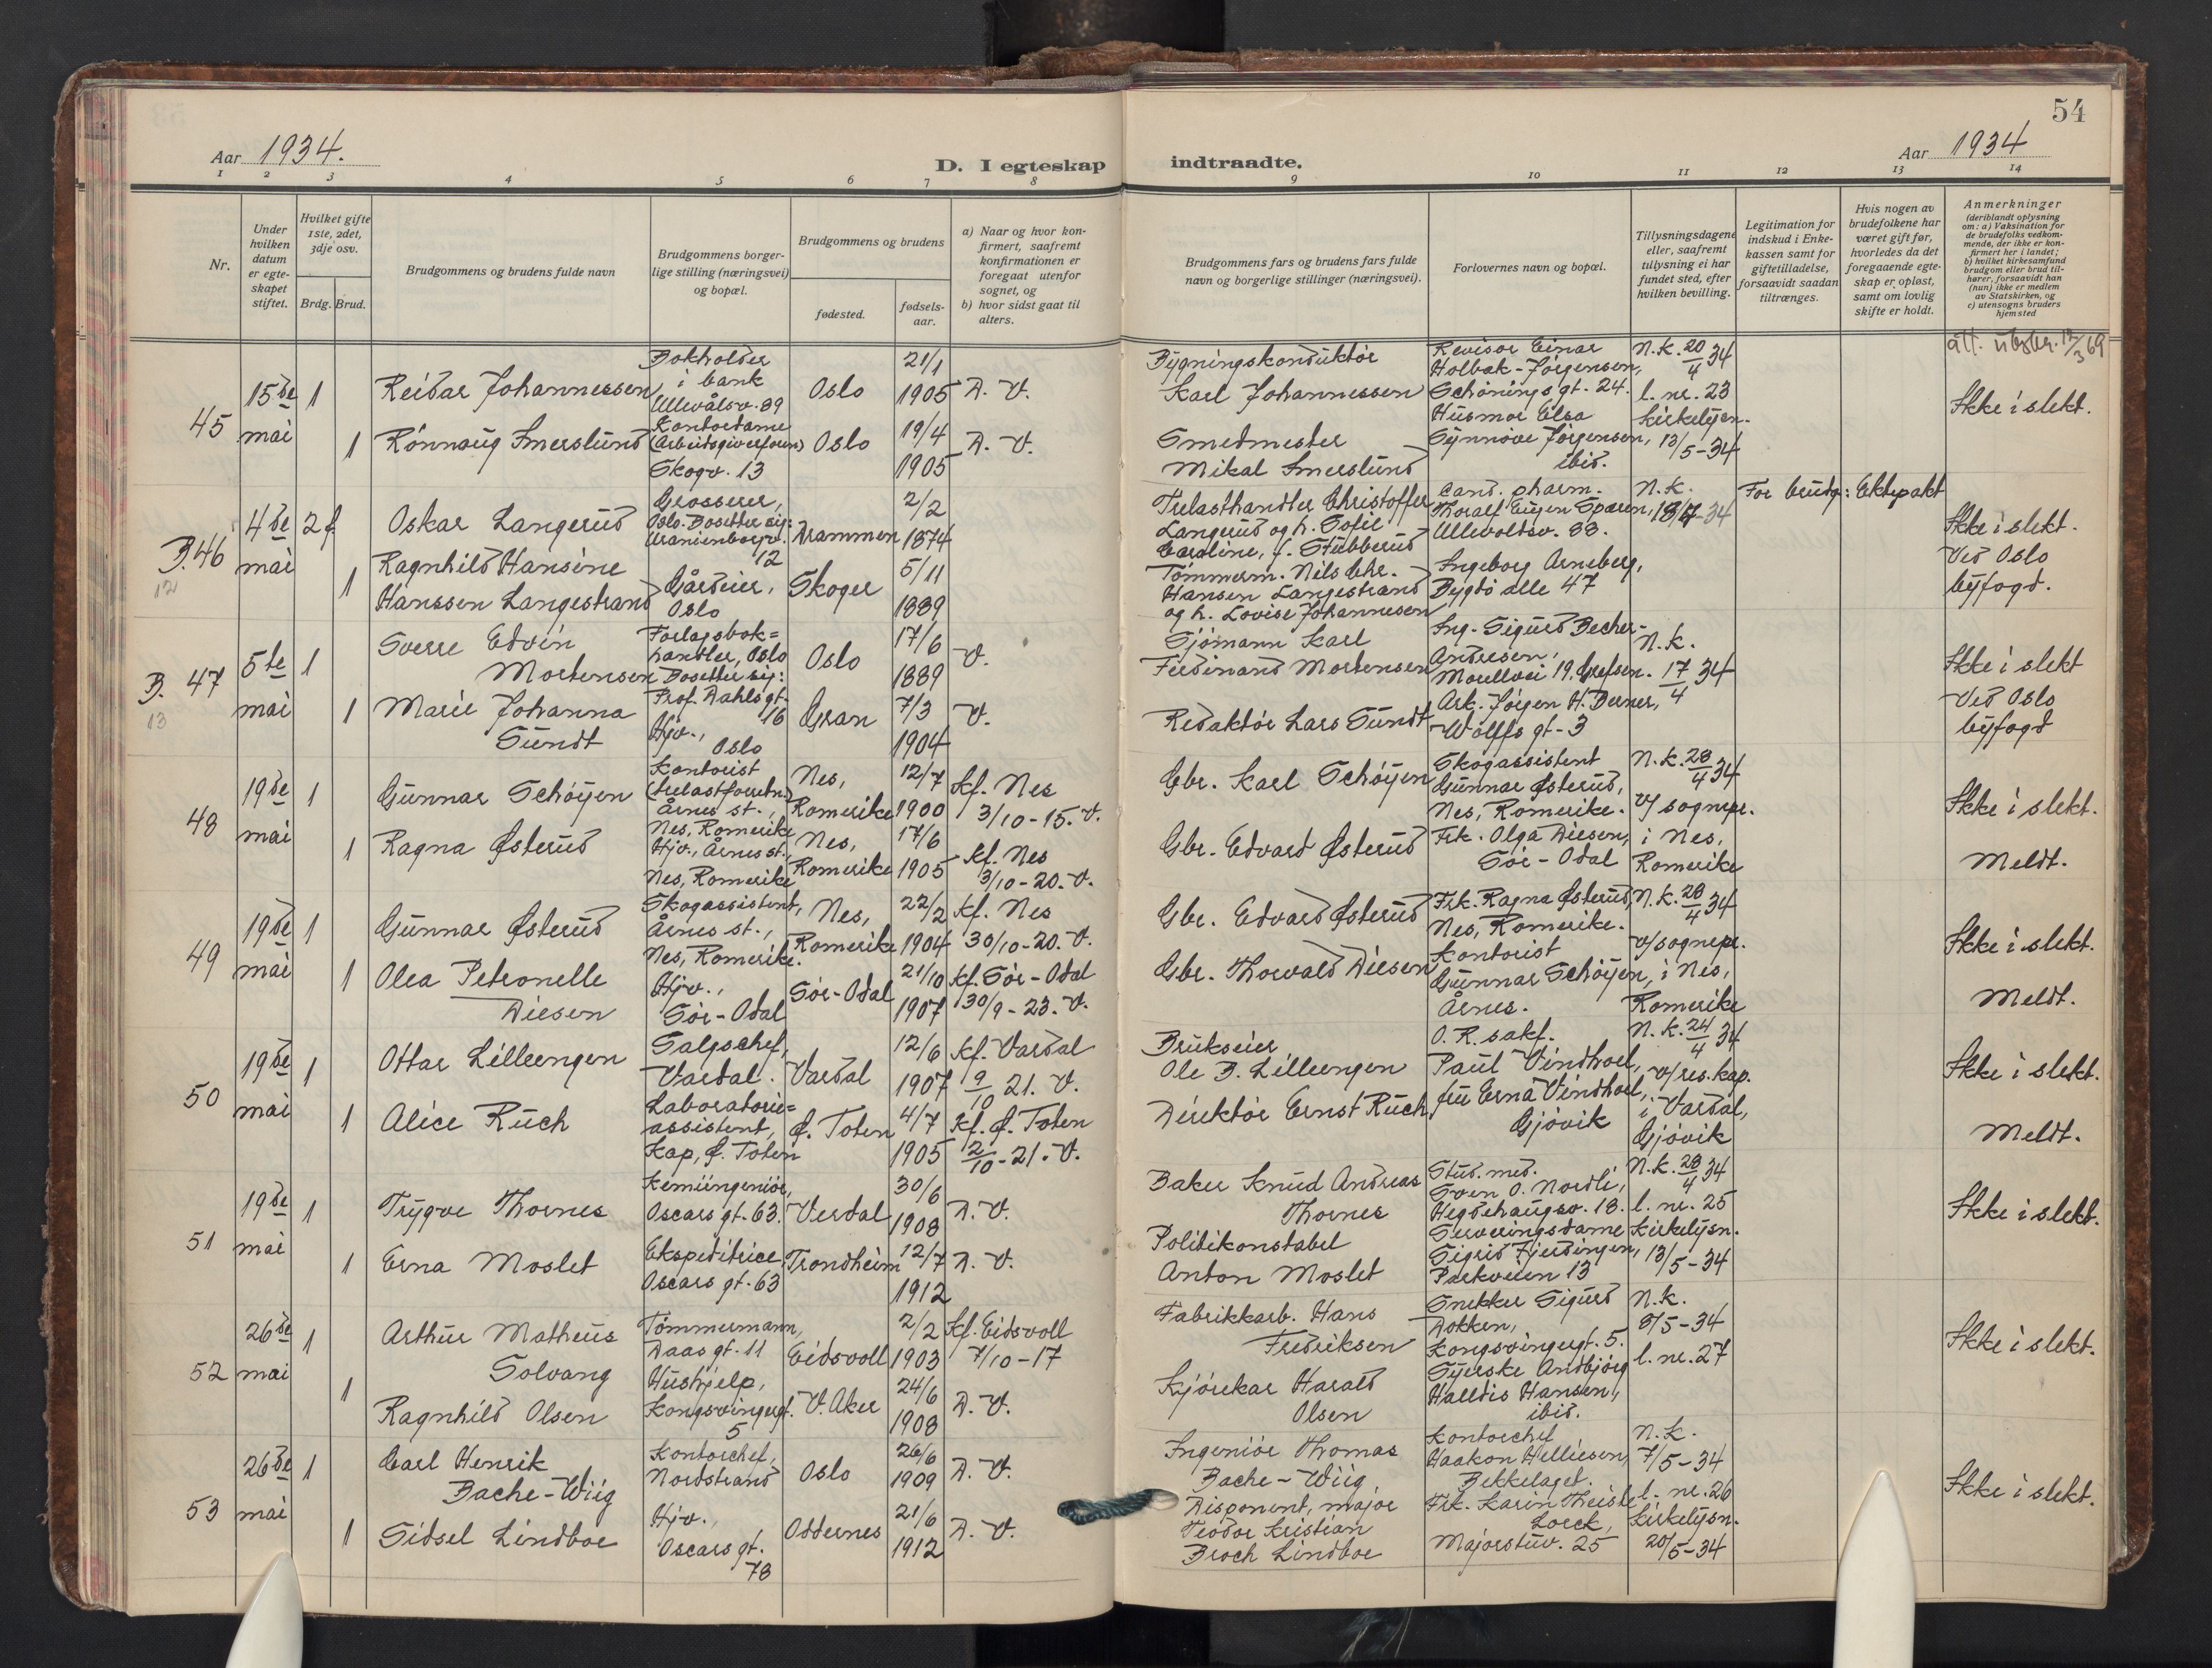 54
Aar 1934.
D. I egteskap indtraadte.
Aar 1934
1 2 3 4 5 6 7 8 9 10 11 12 13 14
Nr.
Under hvilken datum er egteskapet stiftet.
Hvilket gifte 1ste, 2det, 3dje osv.
Brdg. Brud.
Brudgommens og brudens fulde navn
Brudgommens borgerlige stilling (næringsvei) og bopæl.
Brudgommens og brudens
fødested.
fødselsaar.
a) Naar og hvor konfirmert, saafremt konfirmationen er foregaat utenfor sognet, og
b) hvor sidst gaat til alters.
Brudgommens fars og brudens fars fulde navn og borgerlige stillinger (næringsvei).
Forlovernes navn og bopæl.
Tillysningsdagene eller, saafremt tillysning ei har fundet sted, efter hvilken bevilling.
Legitimation for indskud i Enkekassen samt for giftetilladelse, forsaavidt saadan tiltrænges.
Hvis nogen av brudefolkene har været gift før, hvorledes da det foregaaende egteskap er opløst, samt om lovlig skifte er holdt.
Anmerkninger
(deriblandt oplysning om: a) Vaksination for de brudefolks vedkommende, der ikke er konfirmert her i landet; b) hvilket kirkesamfund brudgom eller brud tilhører, forsaavidt han (hun) ikke er medlem av Statskirken, og c) utensogns bruders hjemsted
45
15de mai
1
Reidar Johannessen
Bokholder i bank
Ullevålsv. 89
Oslo
21/1 1905
D. V.
Bygningskonduktør
Karl Johannessen
Revisor Einar
Holbak-Jørgensen,
Schönings gt. 24.
N.k. 20/4 34
l. nr. 23
att. utskr. 12/3 69
Ikke i slekt.
1
Rönnaug Smerslund
Kontordame
(Arbeidsgiverforen)
Skogv. 13
Oslo
19/4 1905
D. V.
Smedmester
Mikal Smerslund
Husmor Elsa
Synnöve Jörgensen,
ibid.
kirkelysn.
13/5-34
B. 46
12
4de mai
2 f
Oskar Langerud
Grosserer,
Oslo. Bosetter sig:
Uranienborgv. 12
Drammen
2/2 1874
Trelasthandler Christoffer
Langerud og h. Sofie
Caroline, f. Stubberud
Cand. pharm.
Thoralf Eugen Sparen,
Ullevoldsv. 88.
N.k.
18/4-34
For brudg: Ektepakt
Ikke i slekt.
Ved Oslo
byfogd.
1
Ragnhild Hansine
Hanssen Langestrand
Gårdeier,
Oslo
Skoger
5/11 1889
Tömmerm. Nils Chr.
Hansen Langestrand
og h. Lovise Johannesen
Ingeborg Arneberg,
Bygdö alle 47
B. 47
13
5te mai
1
Sverre Edvin
Mortensen
Forlagsbok=
handler, Oslo
Bosetter sig:
Prof. Dahls gt. 16
Oslo
17/6 1889
V.
Sjömann Karl
Ferdinand Mortensen
Ing. Sigurd Becher-
Andresen,
Morellvei 19. Grefsen.
N.k.
17/4 34
Ikke i slekt
Ved Oslo
byfogd
1
Marie Johanna
Sundt
Hjv.,
Oslo
Gran
7/3 1904
V.
Redaktör Lars Sundt
Ark. Jörgen H. Berner,
Wolffs gt-3
48
19de mai
1
Gunnar Schöyen
Kontorist
(trelastforretn.)
Årnes st.,
Nes, Romerike
Nes, Romerike
12/7 1900
Kf. Nes
3/10-15. V.
Gbr. Karl Schöyen
Skogassistent
Gunnar Østerud,
Nes, Romerike.
N.k. 28/4 34
v/ sognepr.
Ikke i slekt.
1
Ragna Østerud
Hjv., Årnes st.,
Nes, Romerike
Nes, Romerike
17/6 1905
Kf. Nes
3/10-20. V.
Gbr. Edvard Østerud
Frk. Olga Diesen,
Sör-Odal
i Nes,
Romerike
Meldt.
49
19de mai
1
Gunnar Østerud
Skogassistent,
Årnes st.,
Nes, Romerike.
Nes, Romerike
22/2 1904
Kf. Nes
30/10-20. V.
Gbr. Edvard Østerud
Frk. Ragna Østerud,
Nes, Romerike.
N.k. 28/4 34
v/sognepr.
Ikke i slekt.
1
Olea Petronelle
Diesen
Hjv.,
Sör-Odal
Sör-Odal
21/10 1907
Kf. Sör-Odal
30/9-23. V.
Gbr. Thorvald Diesen
Kontorist
Gunnar Schöyen,
Årnes.
i Nes,
Romerike
Meldt.
50
19de mai
1
Ottar Lilleengen
Salgschef,
Vardal.
Vardal
12/6 1907
Kf. Vardal
9/10 21. V.
Brukseier
Ole B. Lilleengen
O.R. sakf.
Paul Vindhoel,
N.k. 24/4 34
v/res. kap.
Ikke i slekt.
1
Alice Ruch
Laboratorie=
assistent,
Kap, Ø. Toten
Ø. Toten
4/7 1905
Kf. Ø. Toten
2/10-21. V.
Direktör Ernst Ruch
fru Erna Vindhoel,
Gjövik
i Vardal,
Gjövik
Meldt.
51
19de mai
1
Trygve Thornes
Kemiingeniör,
Oscars gt. 63.
Verdal
30/6 1908
D. V.
Baker Knud Andreas
Thornes
Stud. med.
Sven O. Nordli,
Hegdehaugsv. 18.
N.k. 28/4 34
l. nr. 25
Ikke i slekt.
1
Erna Moslet
Ekspeditrice
Oscars gt. 63
Trondheim
12/7 1912
D. V.
Politikonstabel
Anton Moslet
Serveringsdame
Sigrid Fjerdingen,
Parkveien 13
kirkelysn.
13/5-34
52
26de mai
1
Arthur Matheus
Solvang
Tömmermann,
Daas gt. 11
Eidsvoll
2/2 1903
Kf. Eidsvoll
7/10-17
Fabrikkarb. Hans
Fredriksen
Snekker Sigurd
Dokken,
Kongsvingergt. 5.
N.k.
8/5-34
l. nr. 27
Ikke i slekt.
1
Ragnhild Olsen
Hushjelp,
Kongsvingergt. 5
V. Aker
24/6 1908
D. V.
Kjörekar Harald
Olsen
Syerske Andbjörg
Halldis Hansen,
ibid.
53
26de mai
1
Carl Henrik
Bache-Wiig
Kontorchef,
Nordstrand
Oslo
26/6 1909
D. V.
Ingeniör Thomas
Bache-Wiig
Kontorchef
Haakon Helliesen,
Bekkelaget.
N.k.
7/5-34
l. nr. 26
Ikke i slekt.
1
Sidsel Lindboe
Hjv.,
Oscars gt. 78
Oddernes
21/6 1912
D. V.
Disponent, major
Teodor Kristian
Broch Lindboe
Frk. Karin Theiste
Lorck,
Majorstuv. 25
kirkelysn.
20/5-34